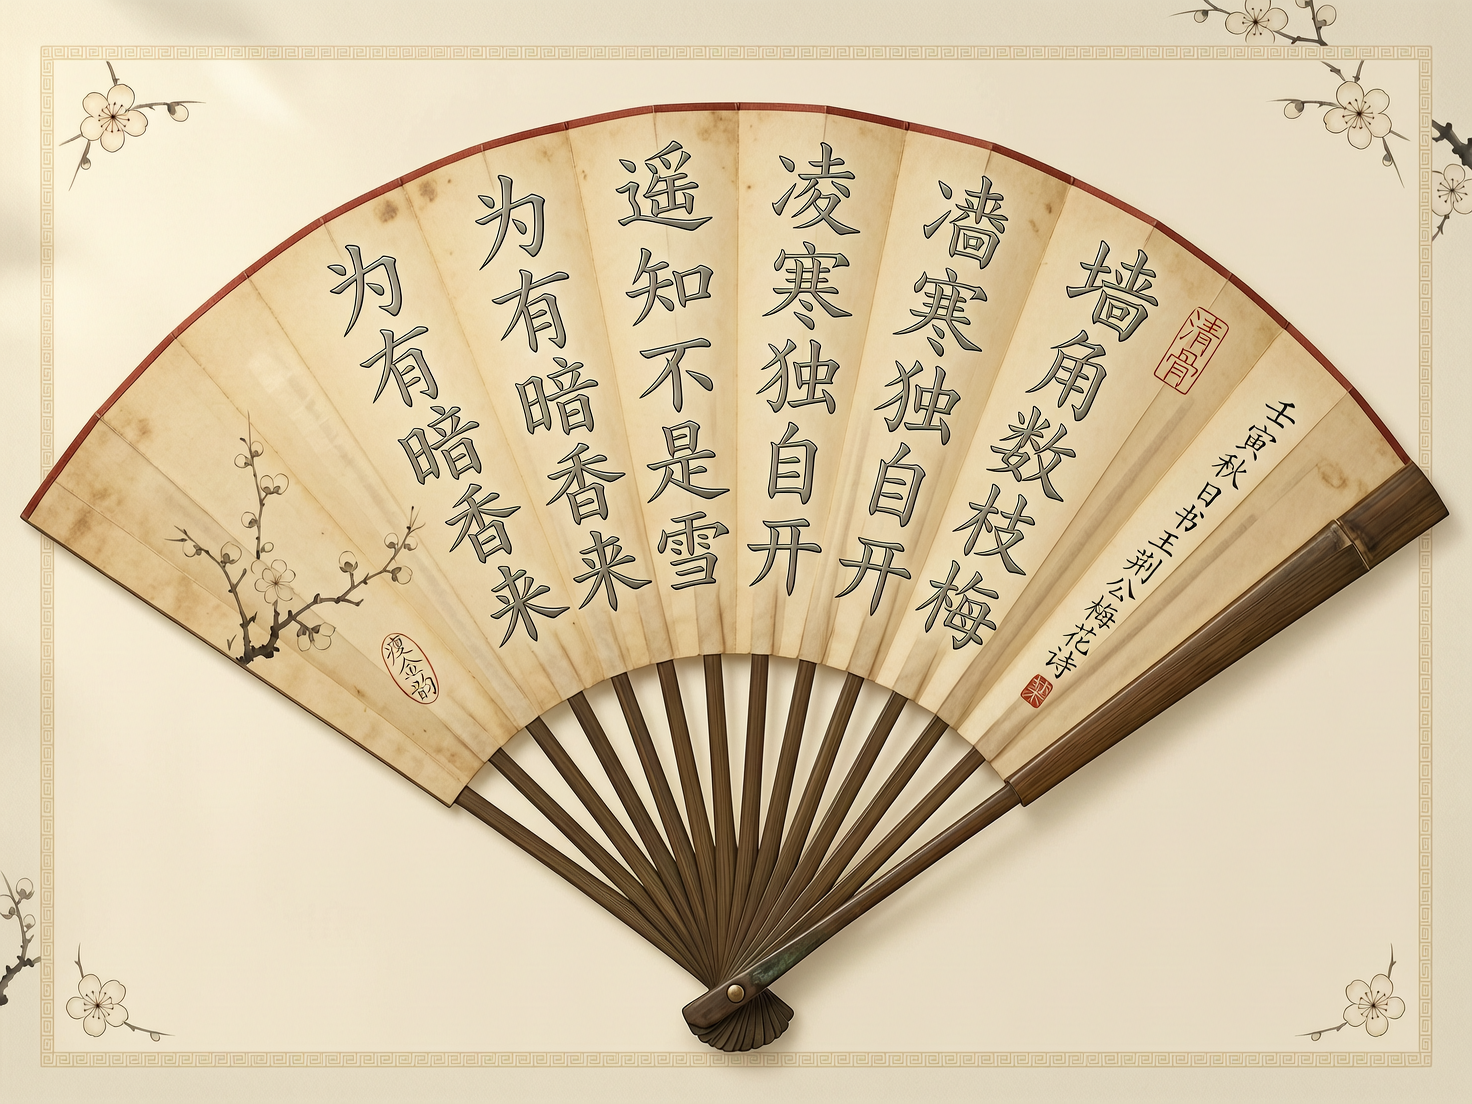 壬寅秋日书王荆公梅花诗
清骨
墙角数枝梅
寒独自开
凌寒独自开
遥知不是雪
为有暗香来
为有暗香来
瘦金韵